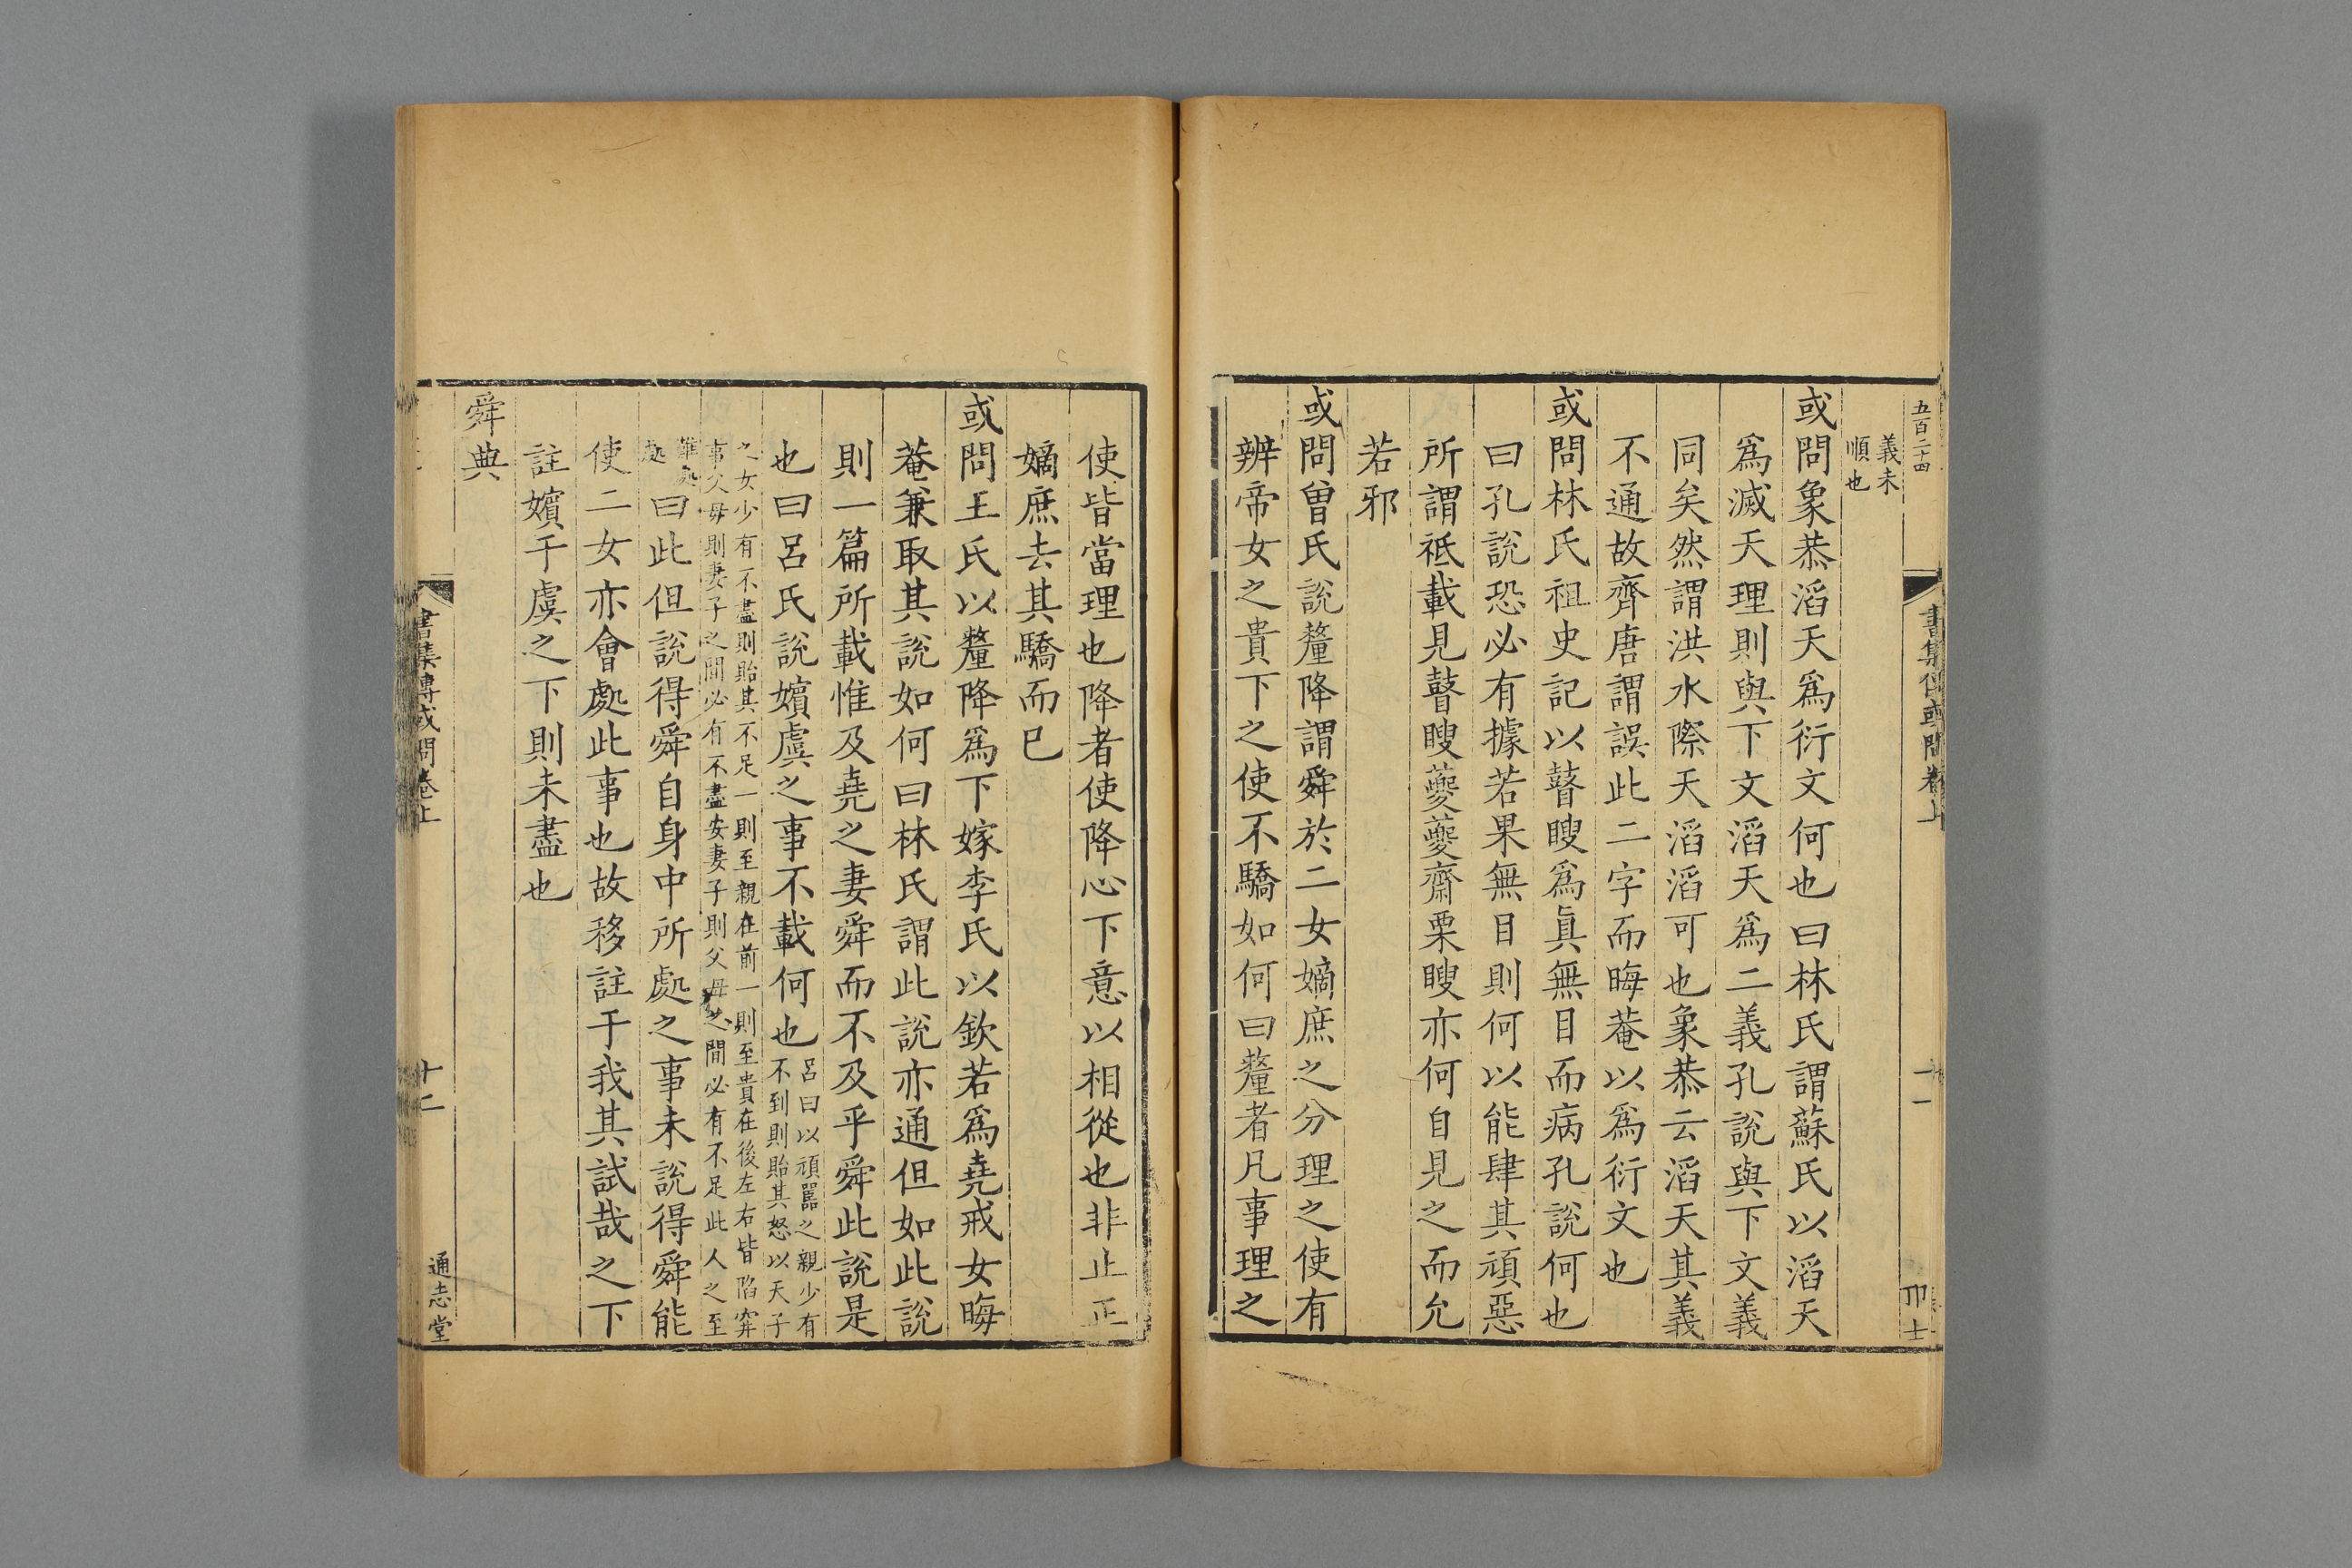 五百二十四
書集傳或問卷上
十一
義未
順也
或問象恭滔天爲衍文何也曰林氏謂蘇氏以滔天
爲滅天理則與下文滔天爲二義孔說與下文義
同矣然謂洪水際天滔滔可也象恭云滔天其義
不通故齊唐謂誤此二字而晦菴以爲衍文也
或問林氏祖史記以瞽瞍爲眞無目而病孔說何也
曰孔說恐必有據若果無目則何以能肆其頑惡
所謂祗載見瞽瞍夔夔齋栗瞍亦何自見之而允
若邪
或問曾氏說釐降謂舜於二女嫡庶之分理之使有
辨帝女之貴下之使不驕如何曰釐者凡事理之
使皆當理也降者使降心下意以相從也非止正
嫡庶去其驕而已
或問王氏以釐降爲下嫁李氏以欽若爲堯戒女晦
菴兼取其說如何曰林氏謂此說亦通但如此說
則一篇所載惟及堯之妻舜而不及乎舜此說是
也曰呂氏說嬪虞之事不載何也
呂曰以頑嚚之親少有
不到則貽其怒以天子
之女少有不盡則貽其不足一則至親在前一則至貴在後左右皆陷穽
事父母則妻子之間必有不盡安妻子則父母之間必有不足此人之至
難處
處
曰此但說得舜自身中所處之事未說得舜能
使二女亦會處此事也故移註于我其試哉之下
註嬪于虞之下則未盡也
舜典
書集傳或問卷上
十二
通志堂